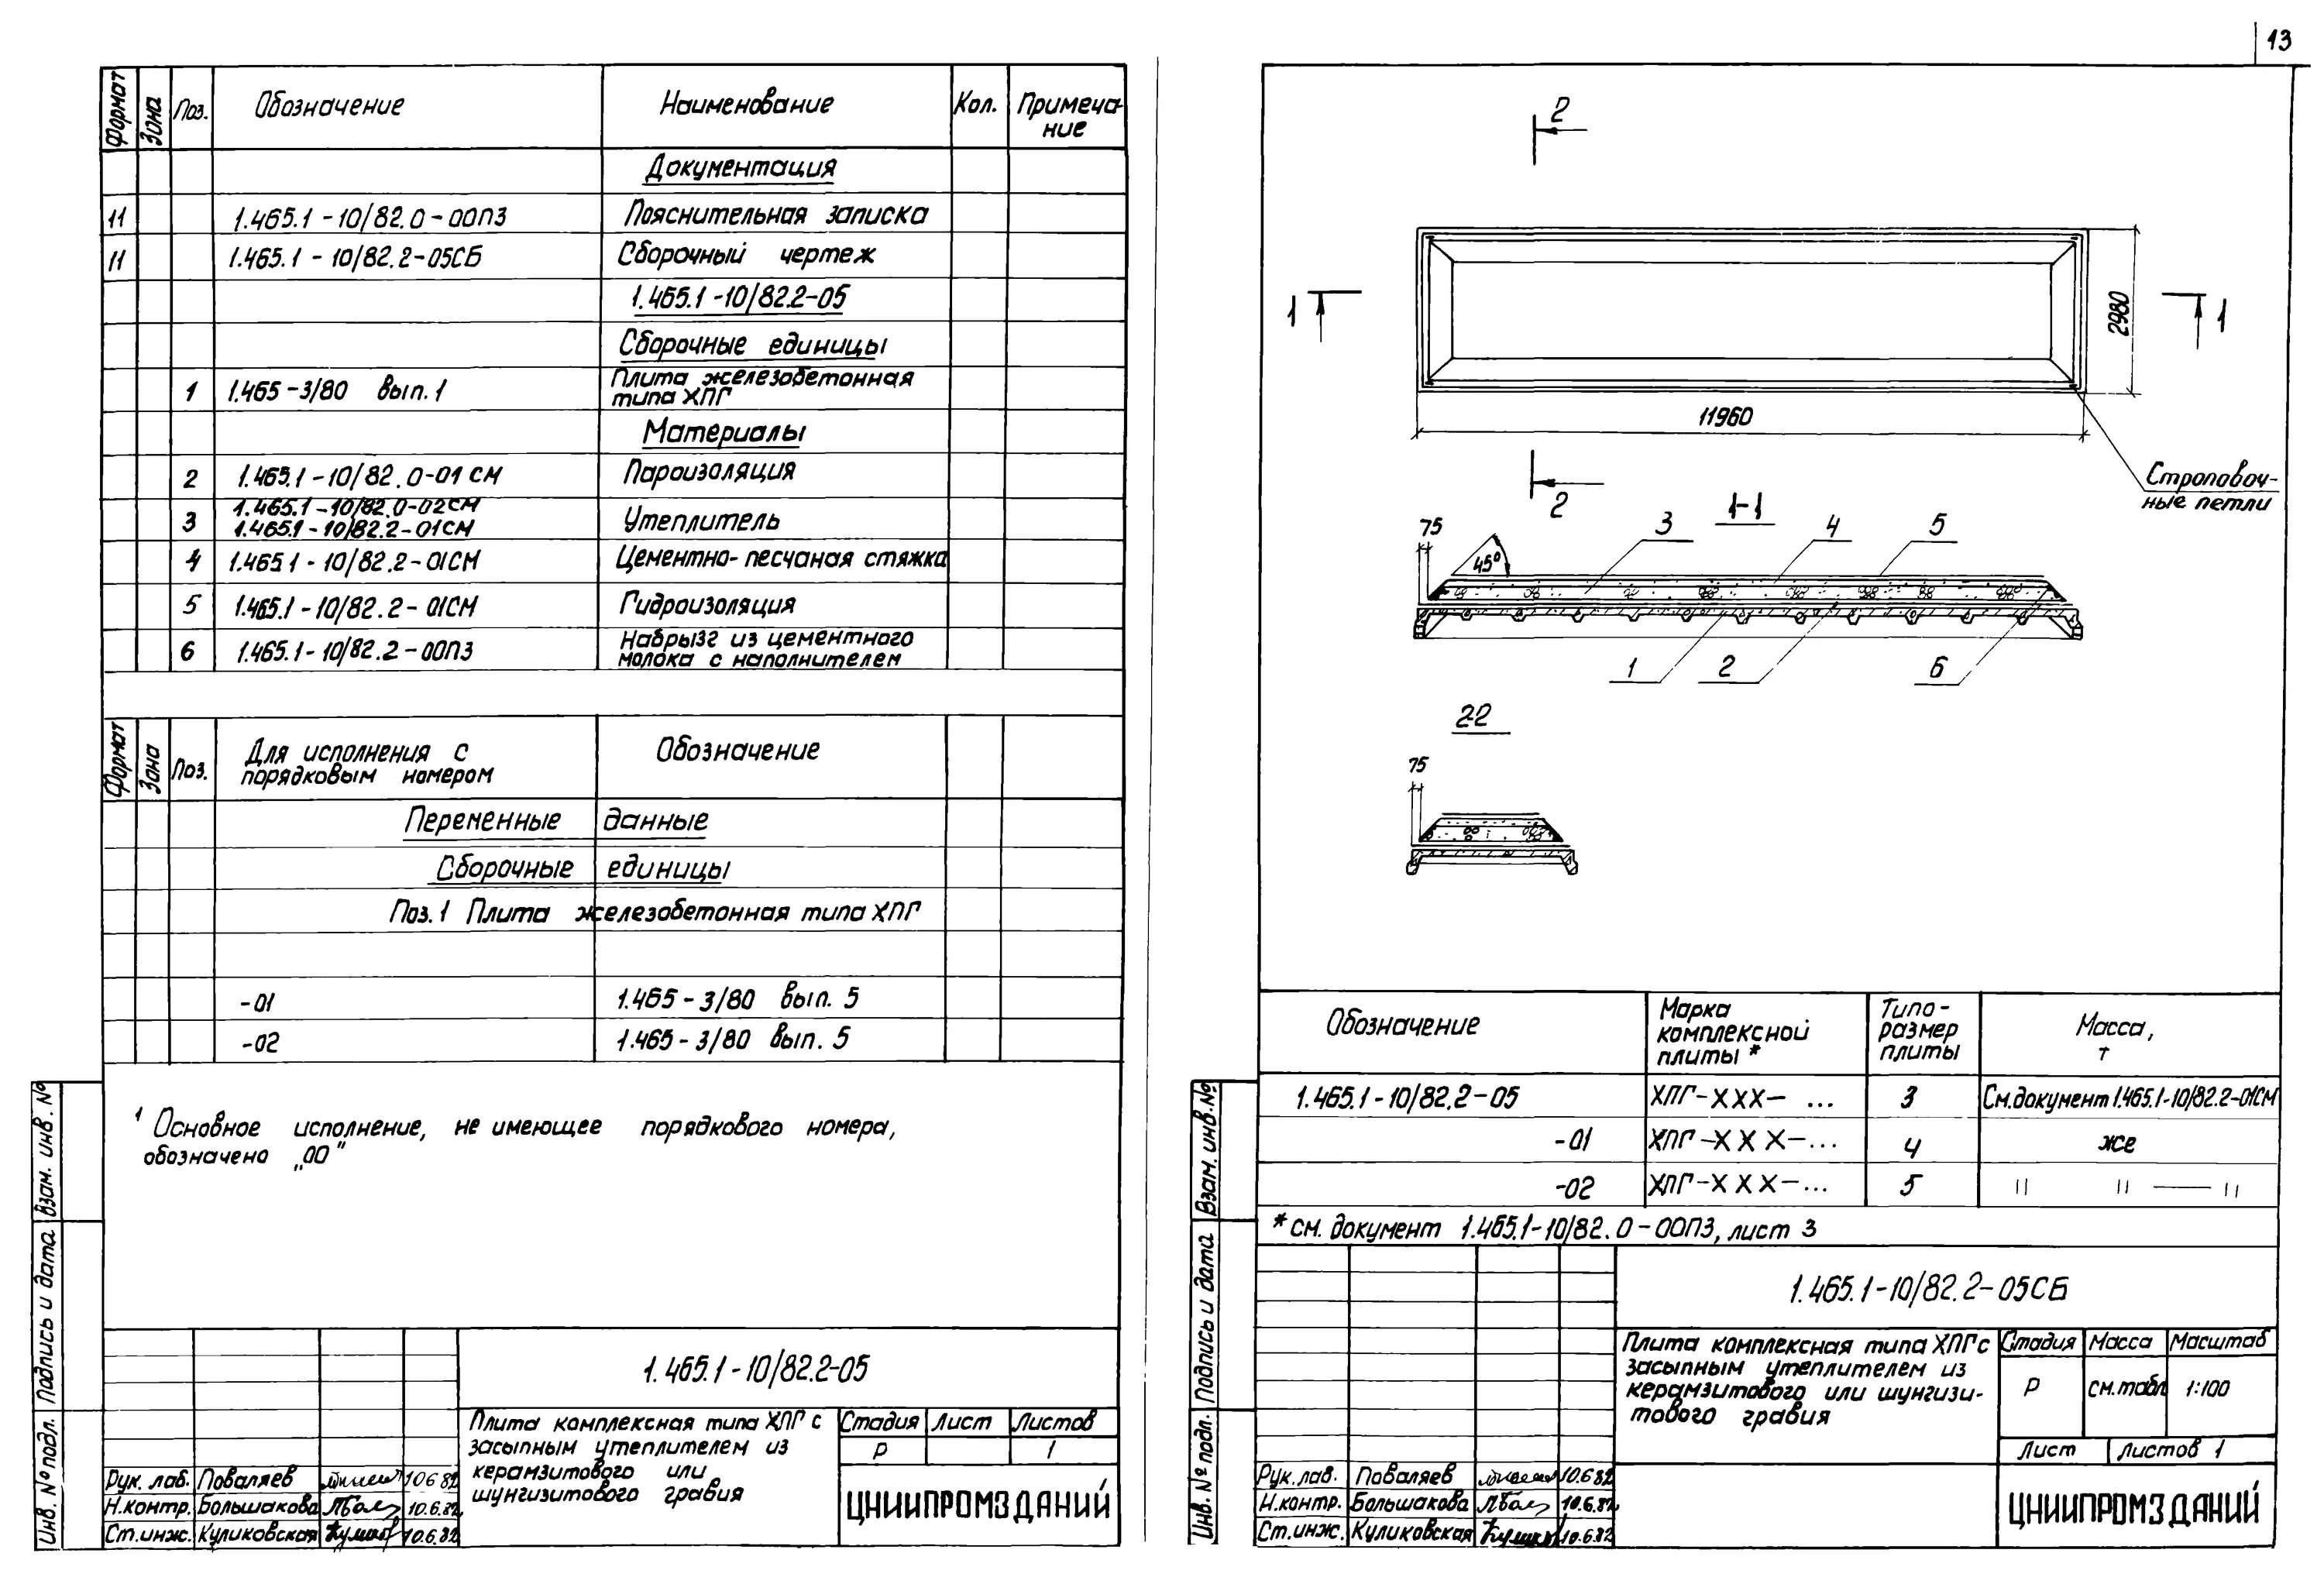 13
Формат Зона Поз. Обозначение Наименование Кол. Примеча-
ние
Документация
11 1.465.1-10/82.0-00ПЗ Пояснительная записка
11 1.465.1-10/82.2-05СБ Сборочный чертеж
1.465.1-10/82.2-05
Сборочные единицы
1 1.465-3/80 вып.1 Плита железобетонная
типа ХПГ
Материалы
2 1.465.1-10/82.0-01СМ Пароизоляция
1.465.1-10/82.0-02СМ
3 1.465.1-10/82.2-01СМ Утеплитель
4 1.465.1-10/82.2-01СМ Цементно-песчаная стяжка
5 1.465.1-10/82.2-01СМ Гидроизоляция
6 1.465.1-10/82.2-00ПЗ Набрызг из цементного
молока с наполнителем
Формат Зона Поз. Для исполнения с
порядковым номером Обозначение
Переменные данные
Сборочные единицы
Поз.1 Плита железобетонная типа ХПГ
-01 1.465-3/80 вып. 5
-02 1.465-3/80 вып. 5
1 Основное исполнение, не имеющее порядкового номера,
обозначено „00"
Взам. инв. №
Подпись и дата
Инв. № подл.
1.465.1-10/82.2-05
Плита комплексная типа ХПГ с
засыпным утеплителем из
керамзитового или
шунгизитового гравия
Стадия Лист Листов
Р 1
ЦНИИПРОМЗДАНИЙ
Рук. лаб. Поваляев 10.6.82
Н.контр. Большакова 10.6.82
Ст.инж. Куликовская 10.6.82
2
1 1
2980
11960
Строповоч-
ные петли
2
1-1
75 45° 3 4 5
1 2 6
2-2
75
Обозначение Марка
комплексной
плиты * Типо-
размер
плиты Масса,
т
1.465.1-10/82.2-05 ХПГ-ХХХ-... 3 См.документ 1.465.1-10/82.2-01СМ
-01 ХПГ-ХХХ-... 4 же
-02 ХПГ-ХХХ-... 5 " " — "
* см. документ 1.465.1-10/82.0-00ПЗ, лист 3
Взам. инв. №
Подпись и дата
Инв. № подл.
1.465.1-10/82.2-05СБ
Плита комплексная типа ХПГ с
засыпным утеплителем из
керамзитового или шунгизи-
тового гравия
Стадия Масса Масштаб
Р см.табл 1:100
Лист Листов 1
ЦНИИПРОМЗДАНИЙ
Рук.лаб. Поваляев 10.6.82
Н.контр. Большакова 10.6.82
Ст.инж. Куликовская 10.6.82